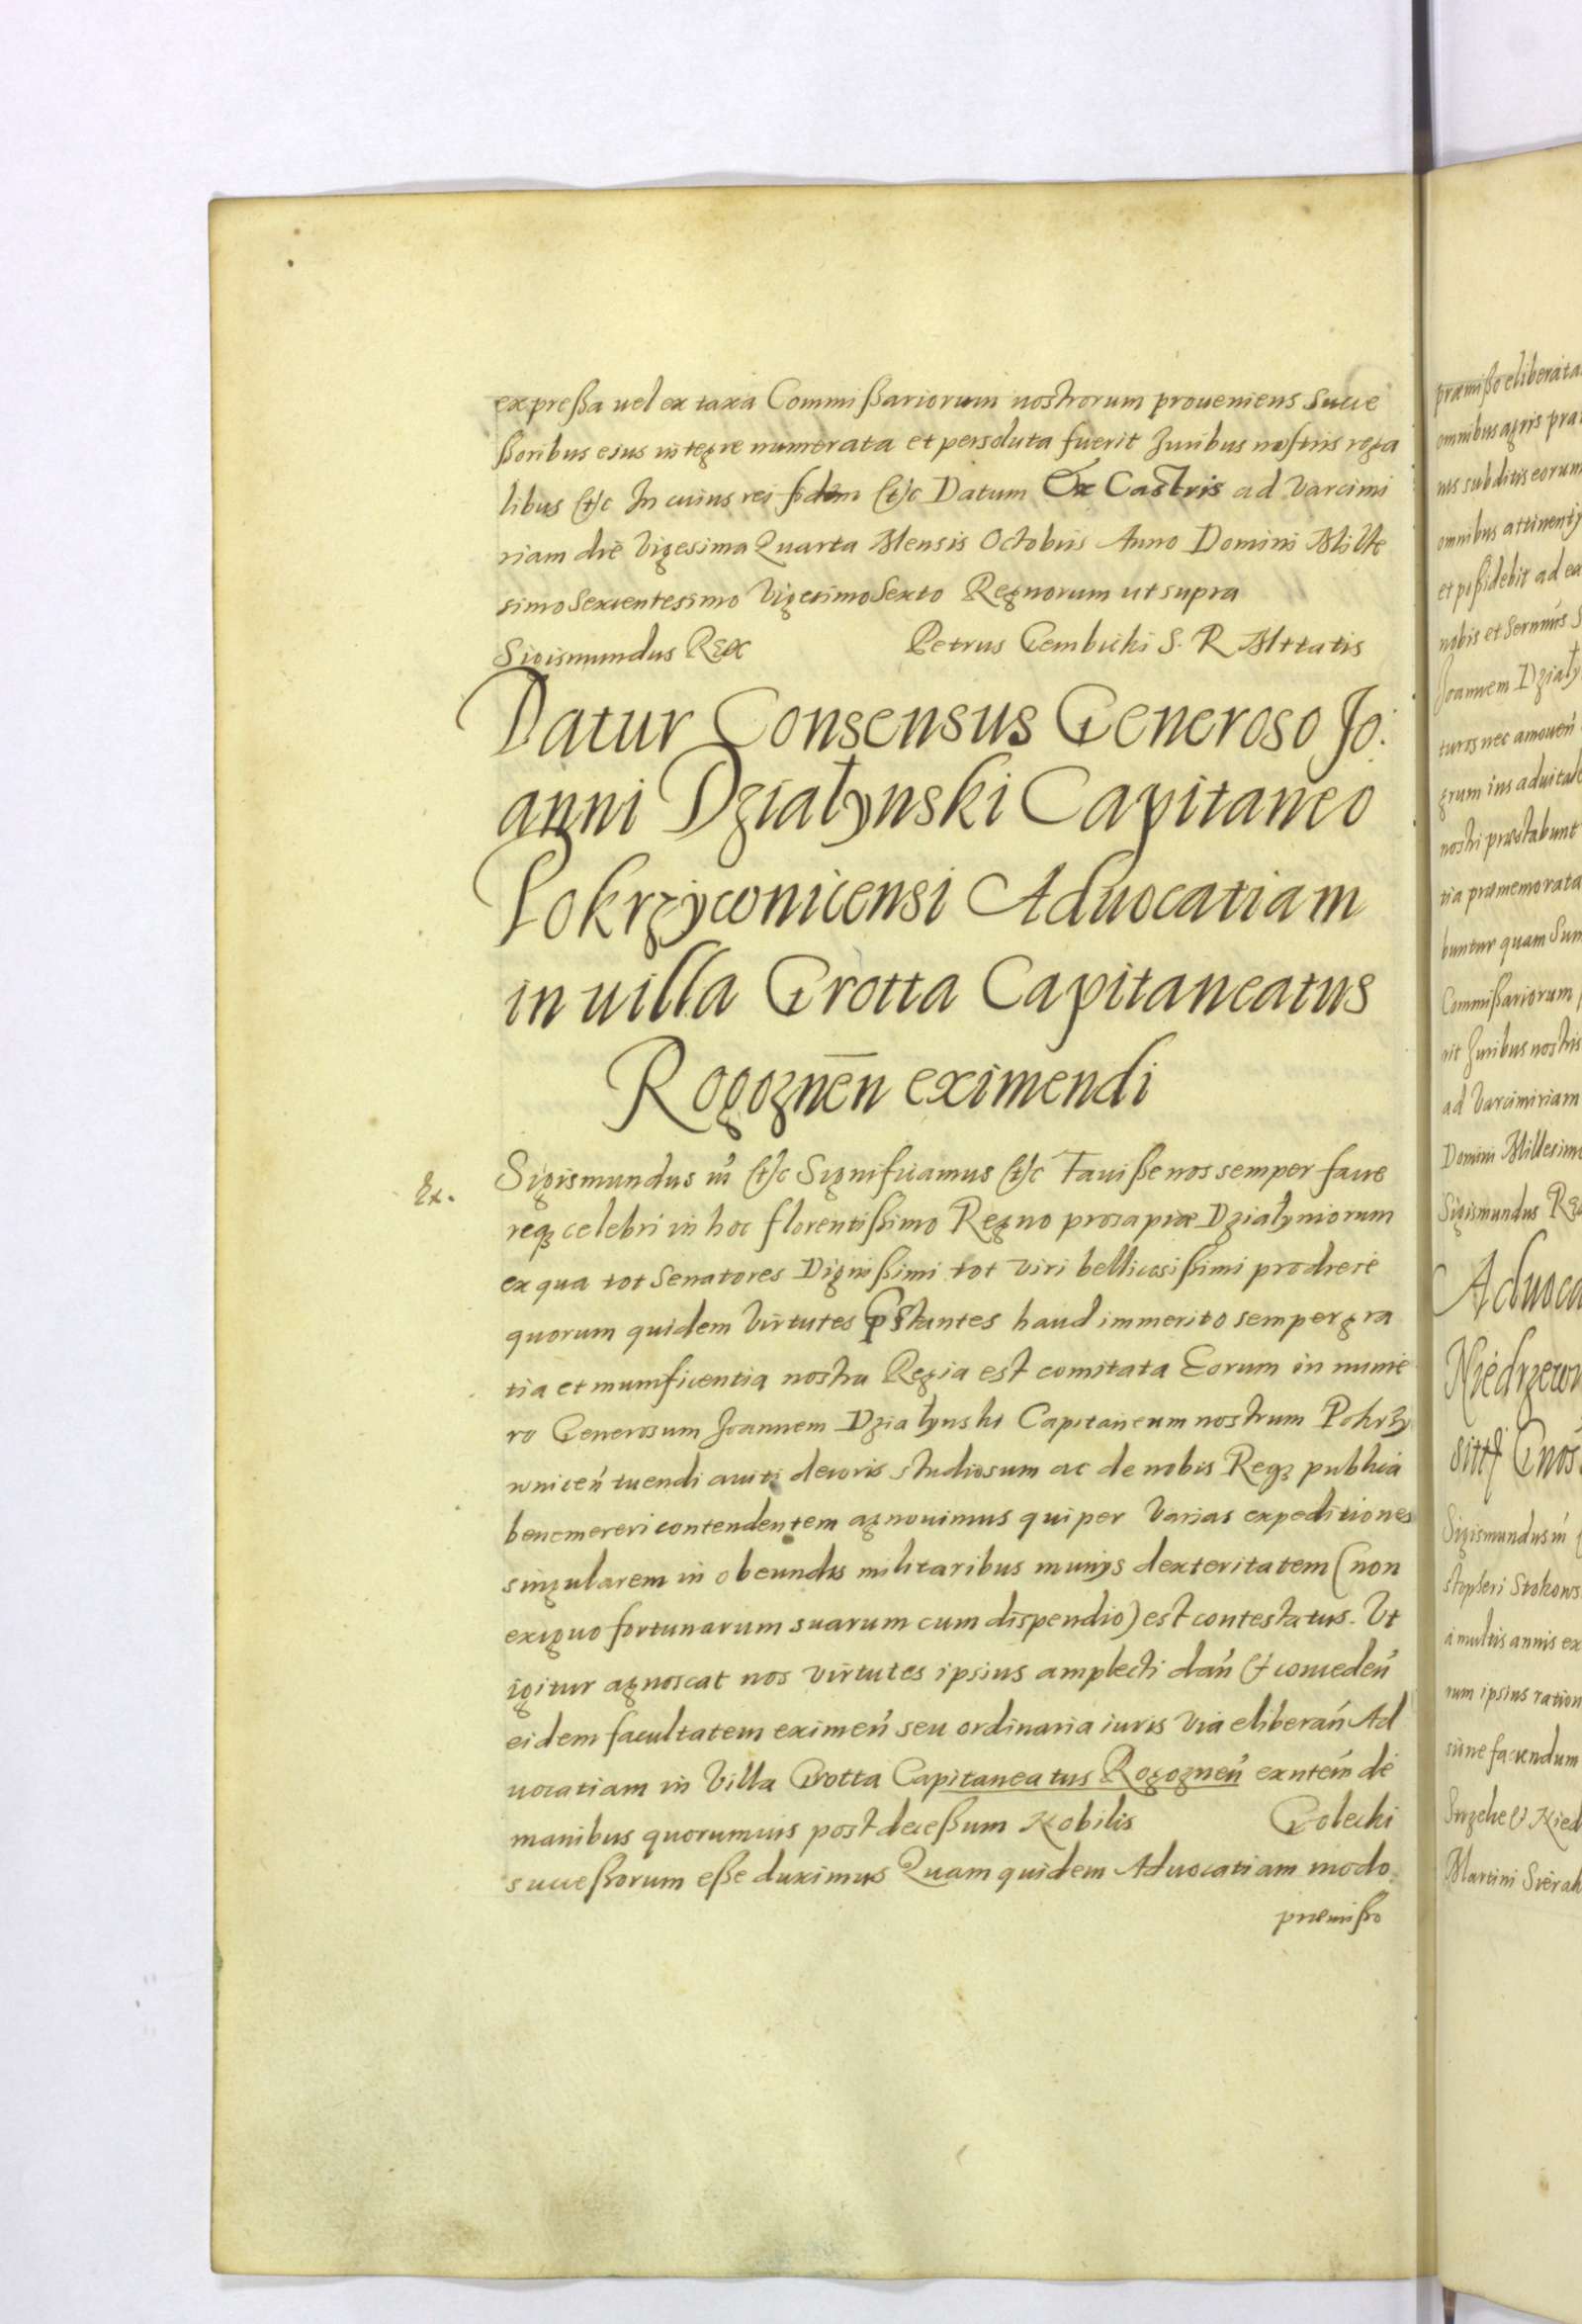 expreßa uel ex taxa Commißariorum nostrorum proueniens Succe
ßoribus eius integre numerata et persoluta fuerit Juribus nostris rega
libus (etc) In cuius rei fidem (etc) Datum Ex Castris ad Varcimi
riam die Vigesima Quarta Mensis Octobris Anno Domini Mille
simo Sexcentesimo Vigesimo Sexto Regnorum ut supra
Sigismundus Rex Petrus Gembicki S. R. Mttatis
Datur Consensus Generoso Jo:
anni Działynski Capitaneo
Pokrzywnicensi Aduocatiam
in uilla Grotta Capitaneatus
Rogoznen̄ eximendi
Ex.
Sigismundus iii (etc) Significamus (etc) Fauiße nos semper faue
req3 celebri in hoc florentißimo Regno prosapiæ Działyniorum
ex qua tot Senatores Dignißimi tot Viri bellicosißimi prodiere
quorum quidem Virtutes pstantes haud immerito semper gra
tia et munificentia nostra Regia est comitata Eorum in nume
ro Generosum Joannem Działynski Capitaneum nostrum Pokrzy
wnicen̄ tuendi auiti decoris studiosum ac de nobis Req3 publica
benemereri contendentem agnouimus qui per Varias expeditiones
singularem in obeundis militaribus munijs dexteritatem (non
exiguo fortunarum suarum cum dispendio) est contestatus. Vt
igitur agnoscat nos virtutes ipsius amplecti dan̄ & conceden̄
eidem facultatem eximen̄ seu ordinaria iuris Via eliberan̄ Ad
uocatiam in Villa Grotta Capitaneatus Rogoznen̄ exntem̄ de
manibus quorumuis post deceßum Nobilis Golecki
succeßorum eße duximus Quam quidem Aduocatiam modo
præmißo
præmißo eliberata
omnibus agris pra
nis subditis eorum
omnibus attinentij
et poßidebit ad ea
nobis et Sernmis S
Joannem Działy
turos nec amouen̄
grum ius aduital
nostri præstabunt
tia præmemorata
buntur quam Sum
Commißariorum
rit Juribus nostris
ad Varcimiriam
Domini Millesimo
Sigismundus Re
Aduoca
Niedrzew
Gnos
Sigismundus iii
stopleri Stokows
à multis annis ex
rum ipsius ration
sune faciendum
Martini Sierak